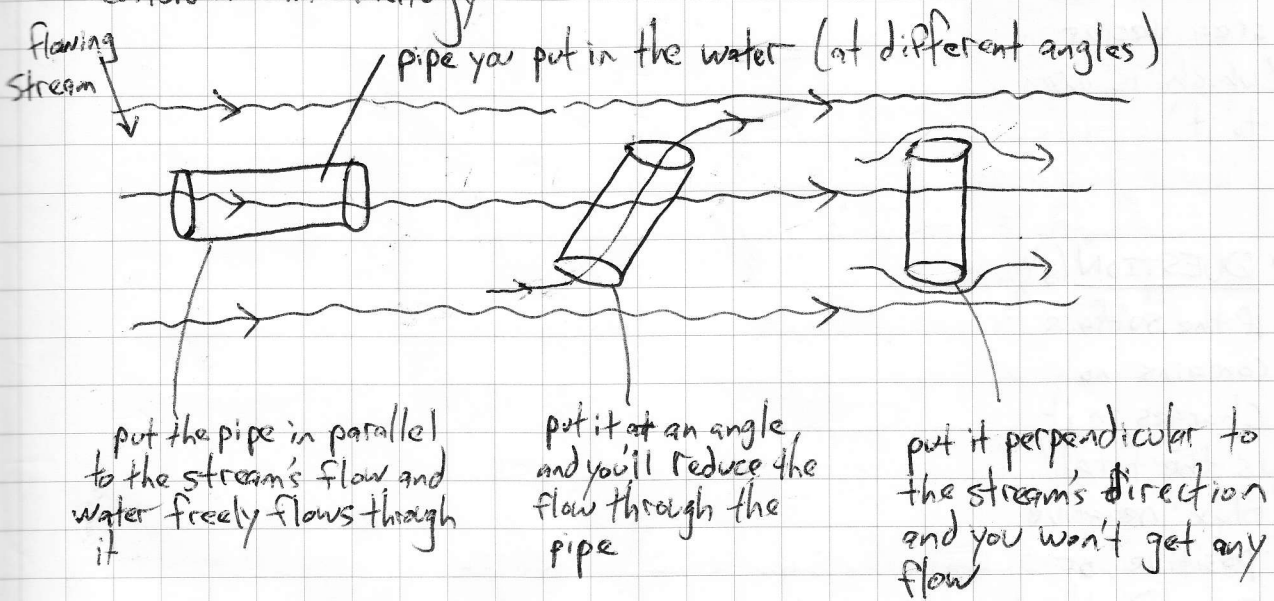 flowing
stream
pipe you put in the water (at different angles)
put the pipe in parallel
to the stream's flow and
water freely flows through
it
put it at an angle,
and you'll reduce the
flow through the
pipe
put it perpendicular to
the stream's direction
and you won't get any
flow